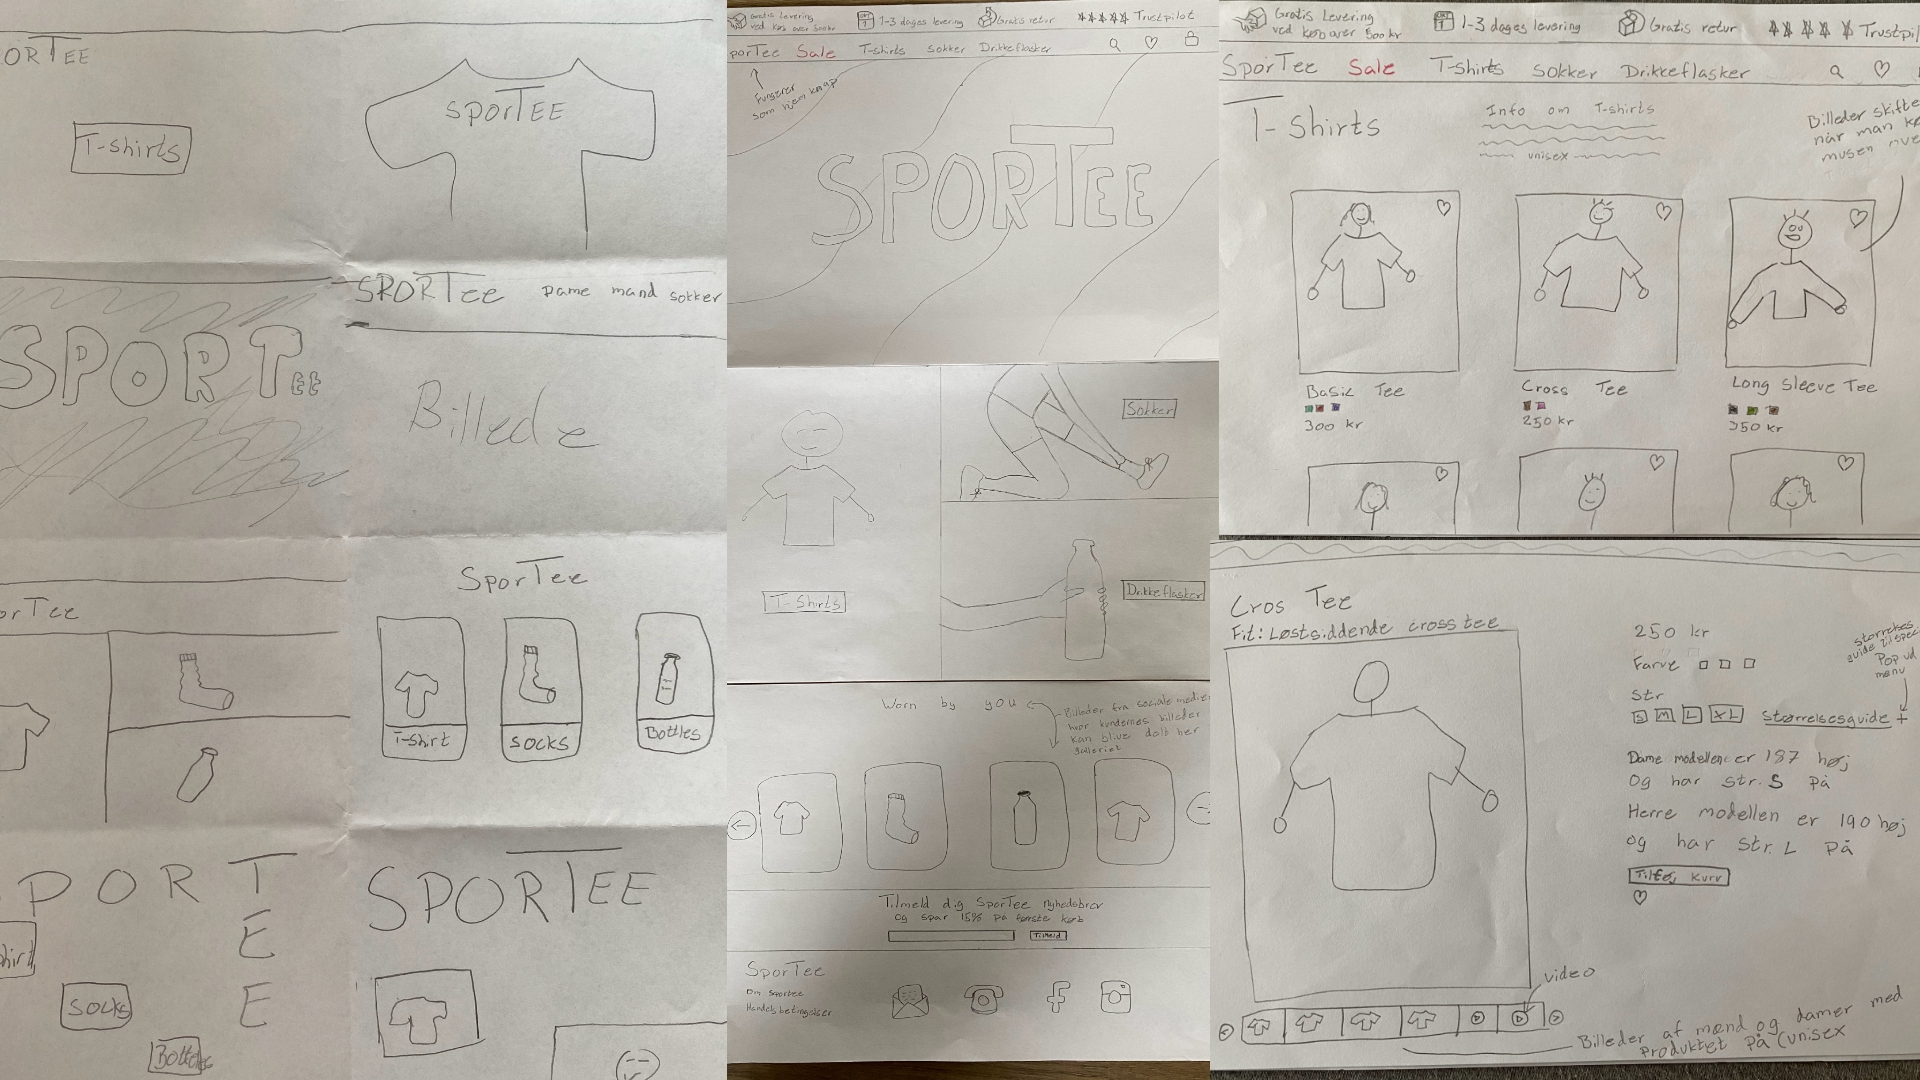 ORTEE
T-shirts
SPORTEE
SPORTEE
SPORTee dame mand sokker
Billede
orTee
SporTee
T-shirt
socks
Bottles
PORT
E
E
hirt
socks
Bottles
SPORTEE
Gratis Levering
ved køb over 500kr
1-3 dages levering
Gratis retur
Trustpilot
porTee Sale T-shirts sokker Drikkeflasker
Fungerer
som hjem knap
SPORTEE
T-Shirts
Sokker
Drikkeflasker
Worn by you
Billeder fra sociale medier
hvor kundernes billeder
kan blive delt her
Galleriet
Tilmeld dig SporTee nyhedsbrev
og spar 15% på første køb
Tilmeld
SporTee
Om Sportee
Handelsbetingelser
Gratis Levering
ved køb over 500 kr
1-3 dages levering
Gratis retur
Trustpil
SporTee Sale T-shirts sokker Drikkeflasker
T-Shirts
Info om T-shirts
unisex
Billeder skifte
når man kø
musen ove
Basic Tee
300 kr
Cross Tee
250 kr
Long Sleeve Tee
350 kr
Cros Tee
Fit: Løstsiddende cross tee
250 kr
Farve
Str
S M L XL Størrelsesguide +
størrelses
guide til spec
Pop ud
menu
Dame modellen er 187 høj
Og har str. S på
Herre modellen er 190 høj
og har str. L på
Tilføj kurv
video
Billeder af mænd og damer med
Produktet på (unisex